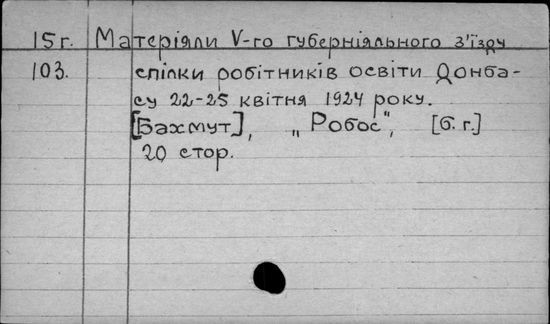 15г. Матеріяли V-го губерніяльного з'їзду
103. спілки робітників освіти Донба-
су 22-25 квітня 1924 року.
[Бахмут], „Робос", [б. г.]
20 стор.